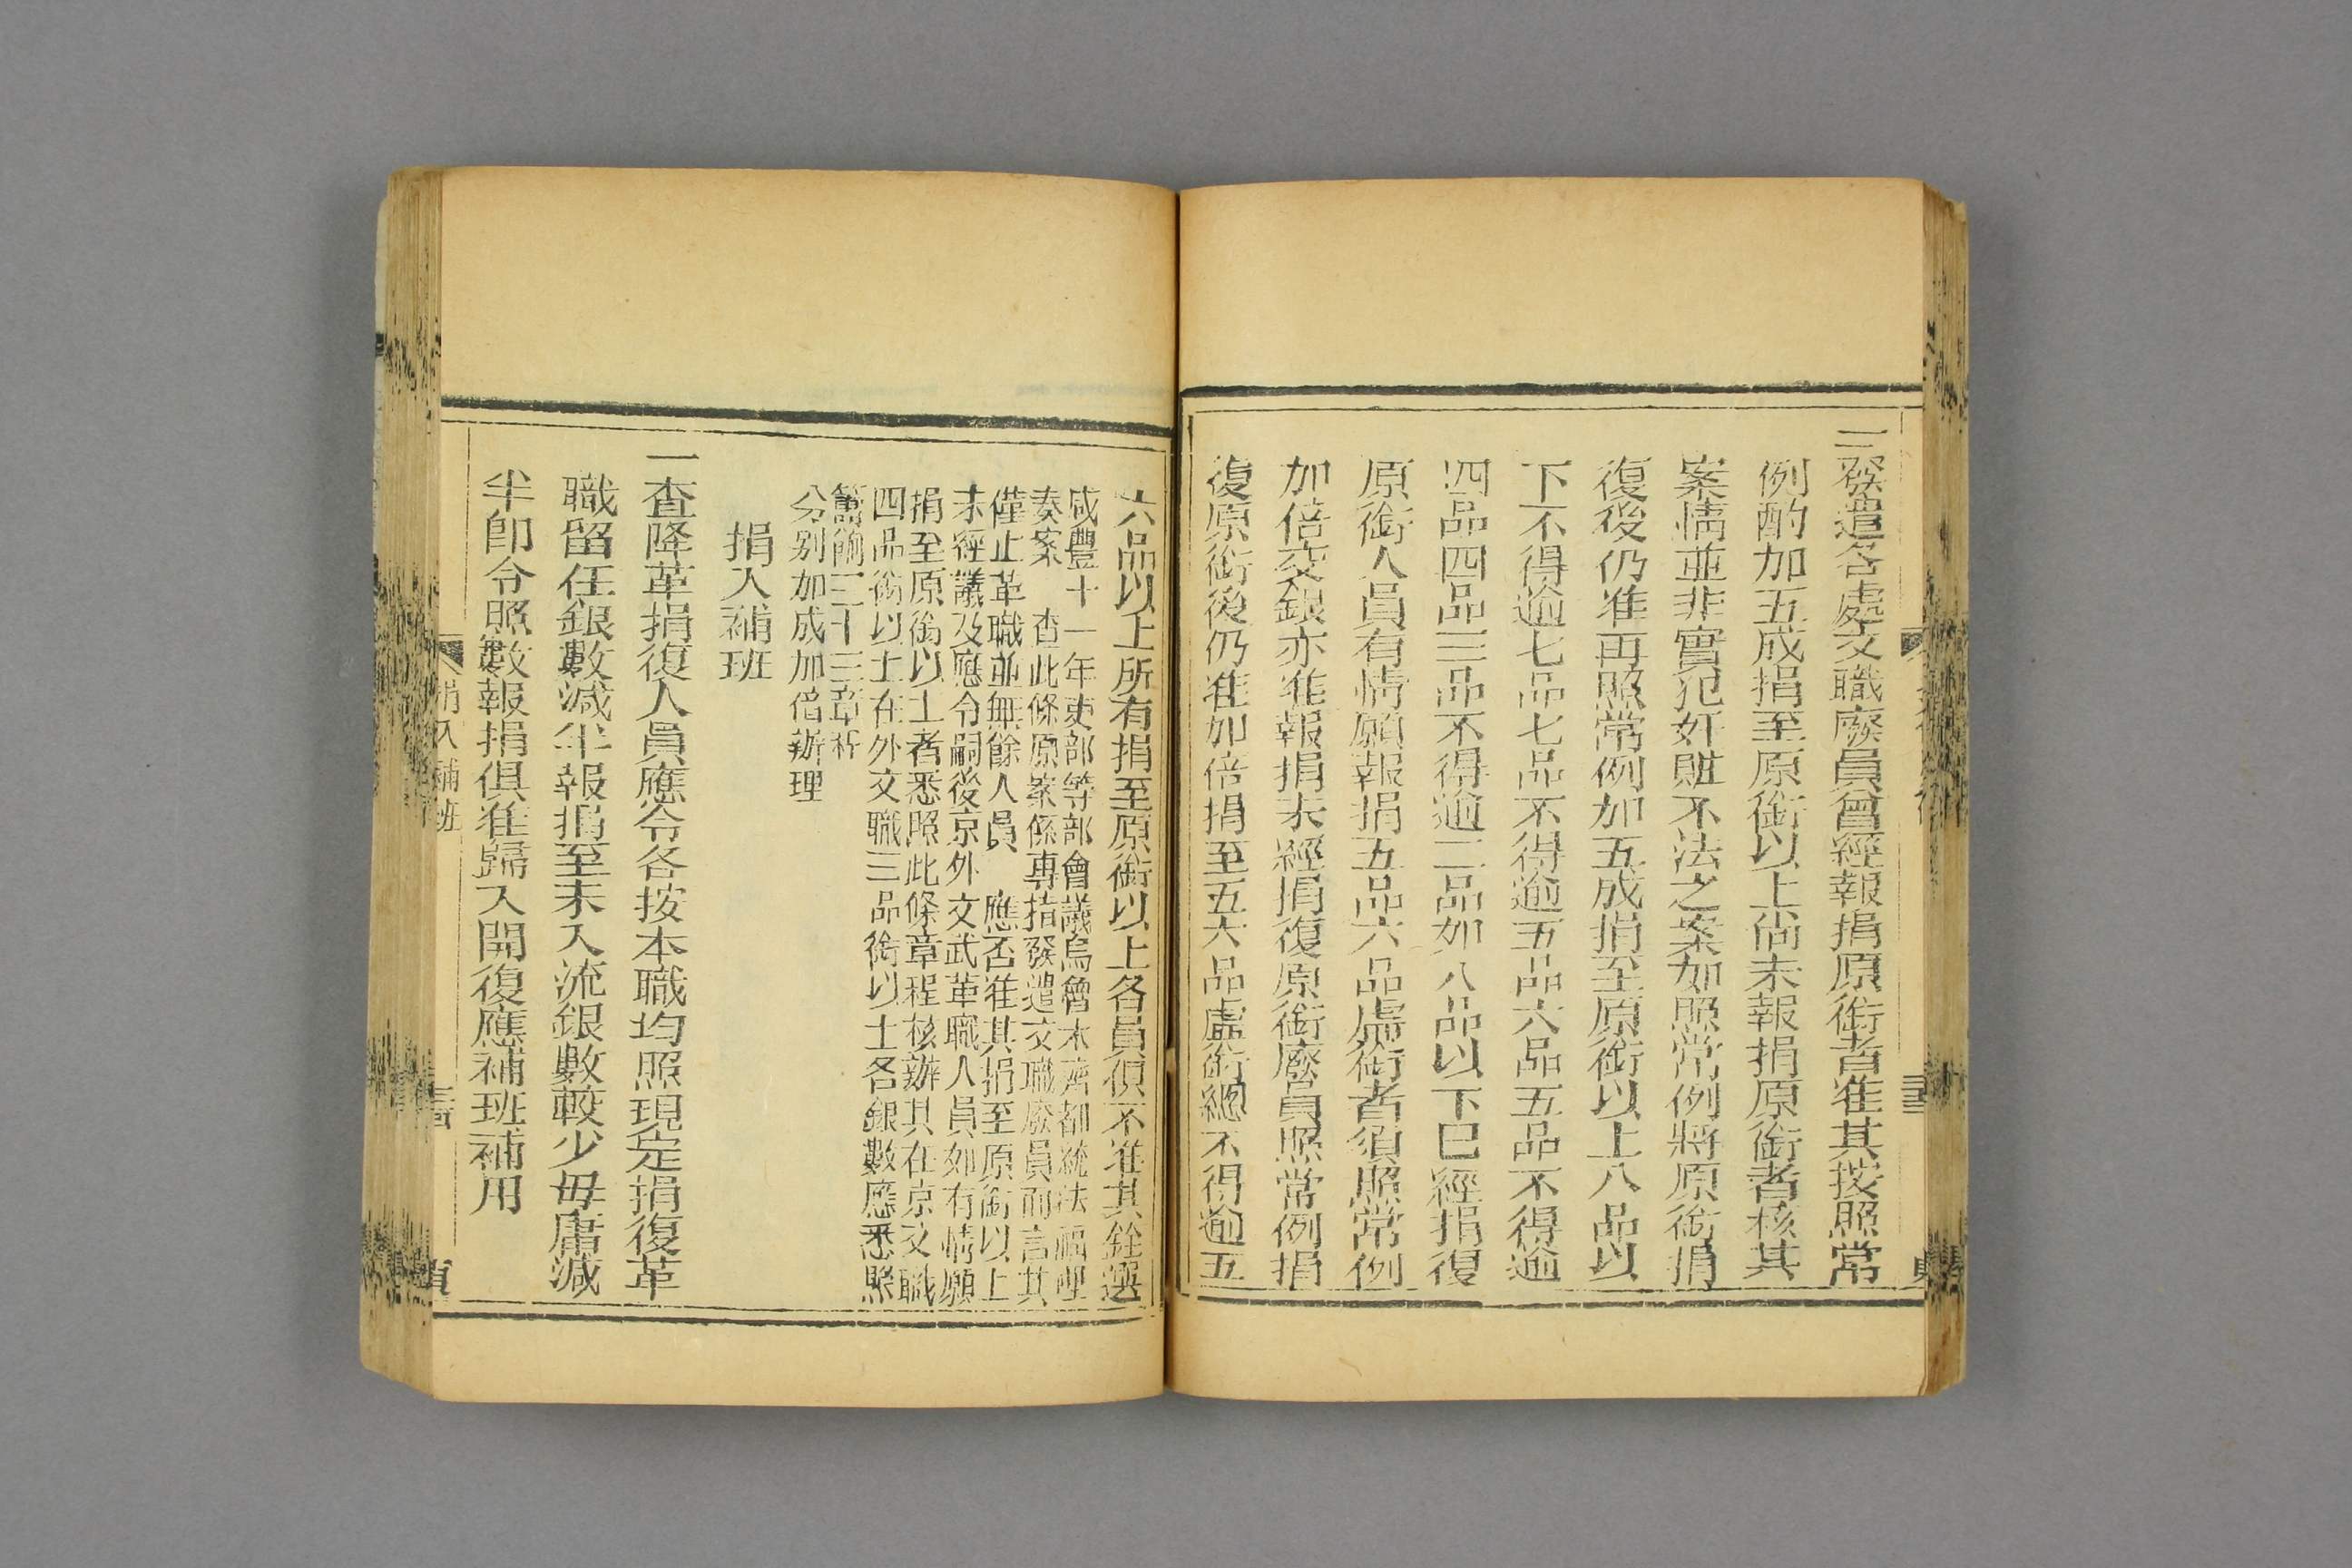 一發遣各處文職廢員曾經報捐原銜者准其按照常
例酌加五成捐至原銜以上尚未報捐原銜者核其
案情並非實犯奸贓不法之案如照常例將原銜捐
復後仍准再照常例加五成捐至原銜以上八品以
下不得逾七品七品不得逾五品六品五品不得逾
四品四品三品不得逾二品如八品以下已經捐復
原銜人員有情願報捐五品六品虛銜者須照常例
加倍交銀亦准報捐未經捐復原銜廢員照常例捐
復原銜後仍准加倍捐至五六品虛銜總不得逾五
六品以上所有捐至原銜以上各員俱不准其銓選
咸豐十一年吏部等部會議烏魯木齊都統法福理
奏案 查此條原案係專指發遣文職廢員而言其
僅止革職並無餘人員 應否准其捐至原銜以上
未經議及應令嗣後京外文武革職人員如有情願
捐至原銜以上者悉照此條章程核辦其在京文職
四品銜以上在外文職三品銜以上各銀數應悉照
籌餉三十三章析
分別加成加倍辦理
捐入補班
一查降革捐復人員應令各按本職均照現定捐復革
職留任銀數減半報捐至未入流銀數較少毋庸減
半卽令照數報捐俱准歸入開復應補班補用
捐入補班